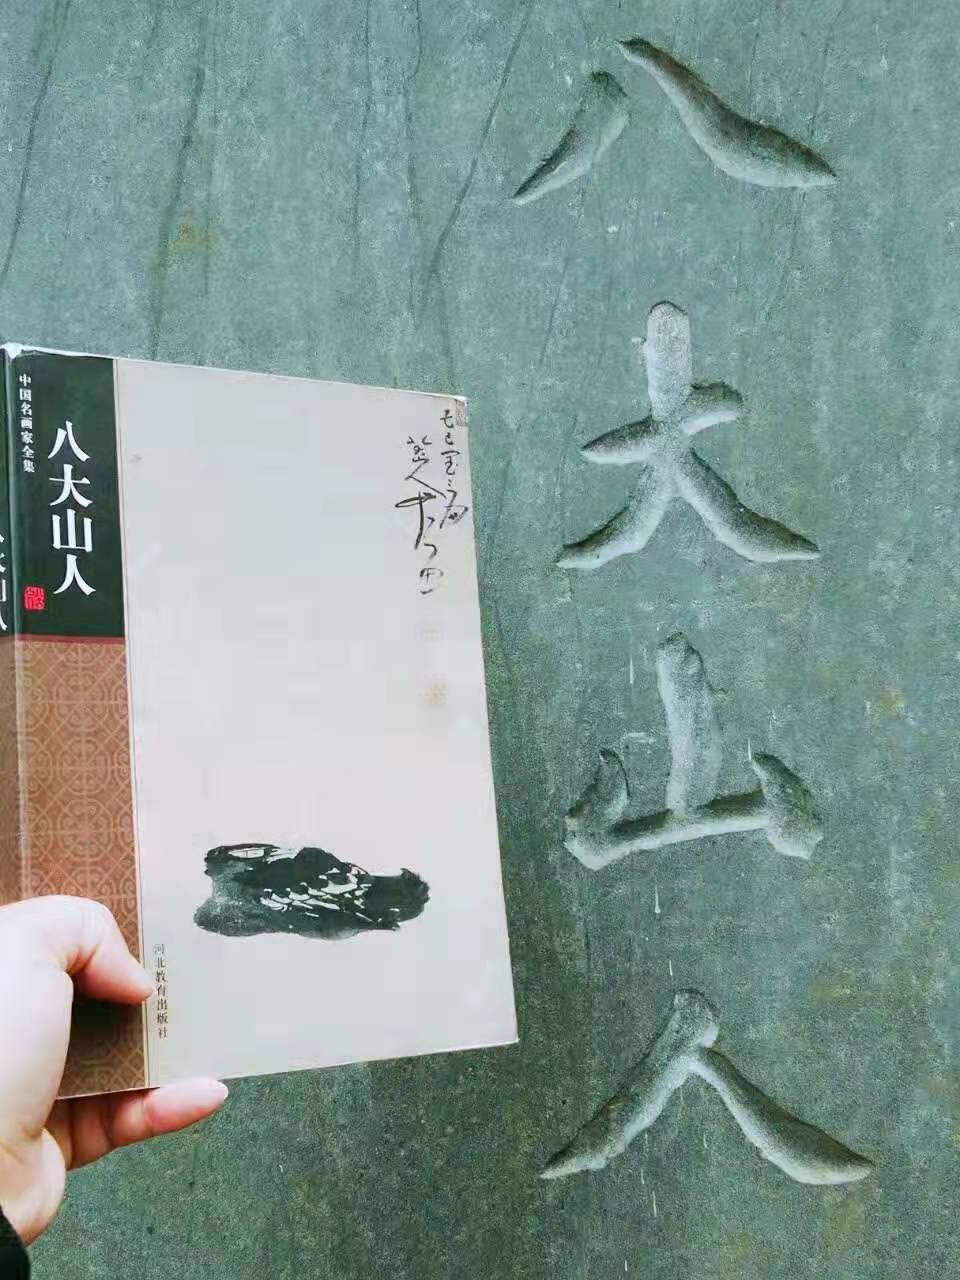 八大山人
中国名画家全集
八大山人
河北教育出版社